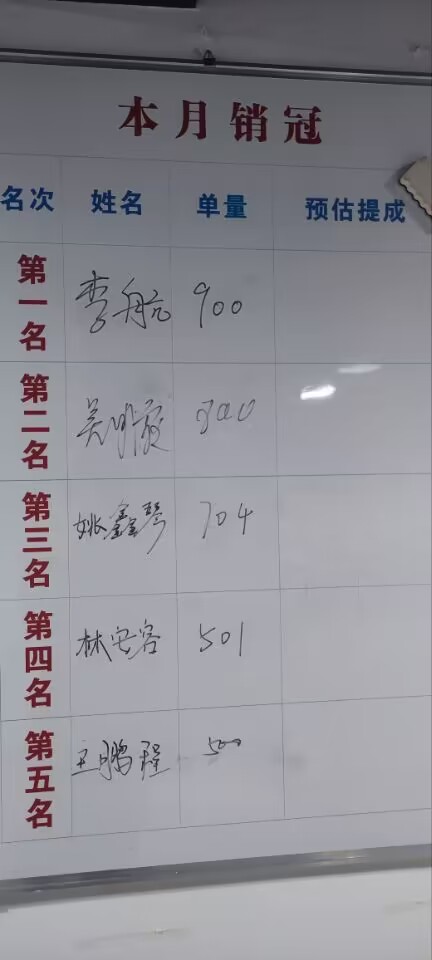 本月销冠
名次 姓名 单量 预估提成
第一名 李航 900
第二名 吴明
第三名 姚鑫琴 704
第四名 林安容 501
第五名 王鹏程 500